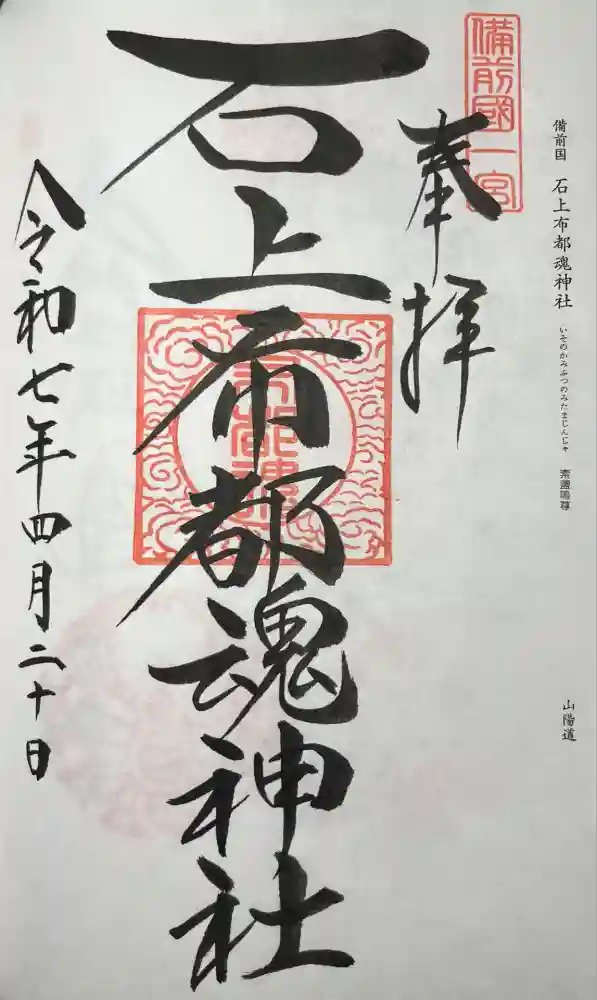 備前国 石上布都魂神社 いそのかみふつのみたまじんじゃ 素盞嗚尊 山陽道
備前國一宮
奉拝
石上布都魂神社
令和七年四月二十日